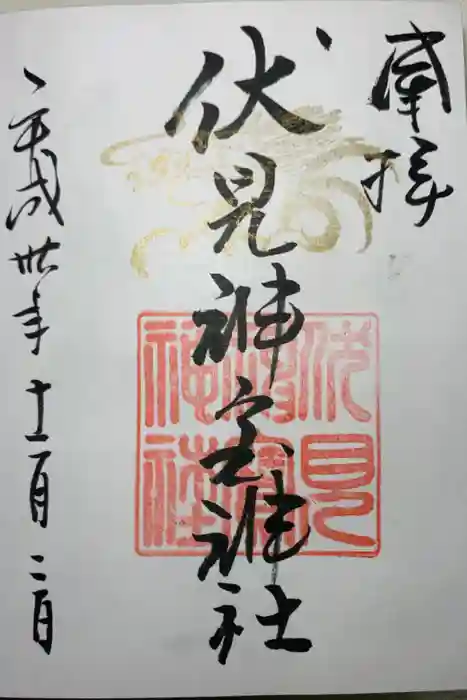 奉拝
伏見神宝神社
伏見神寶神社
平成卅年十一月二日